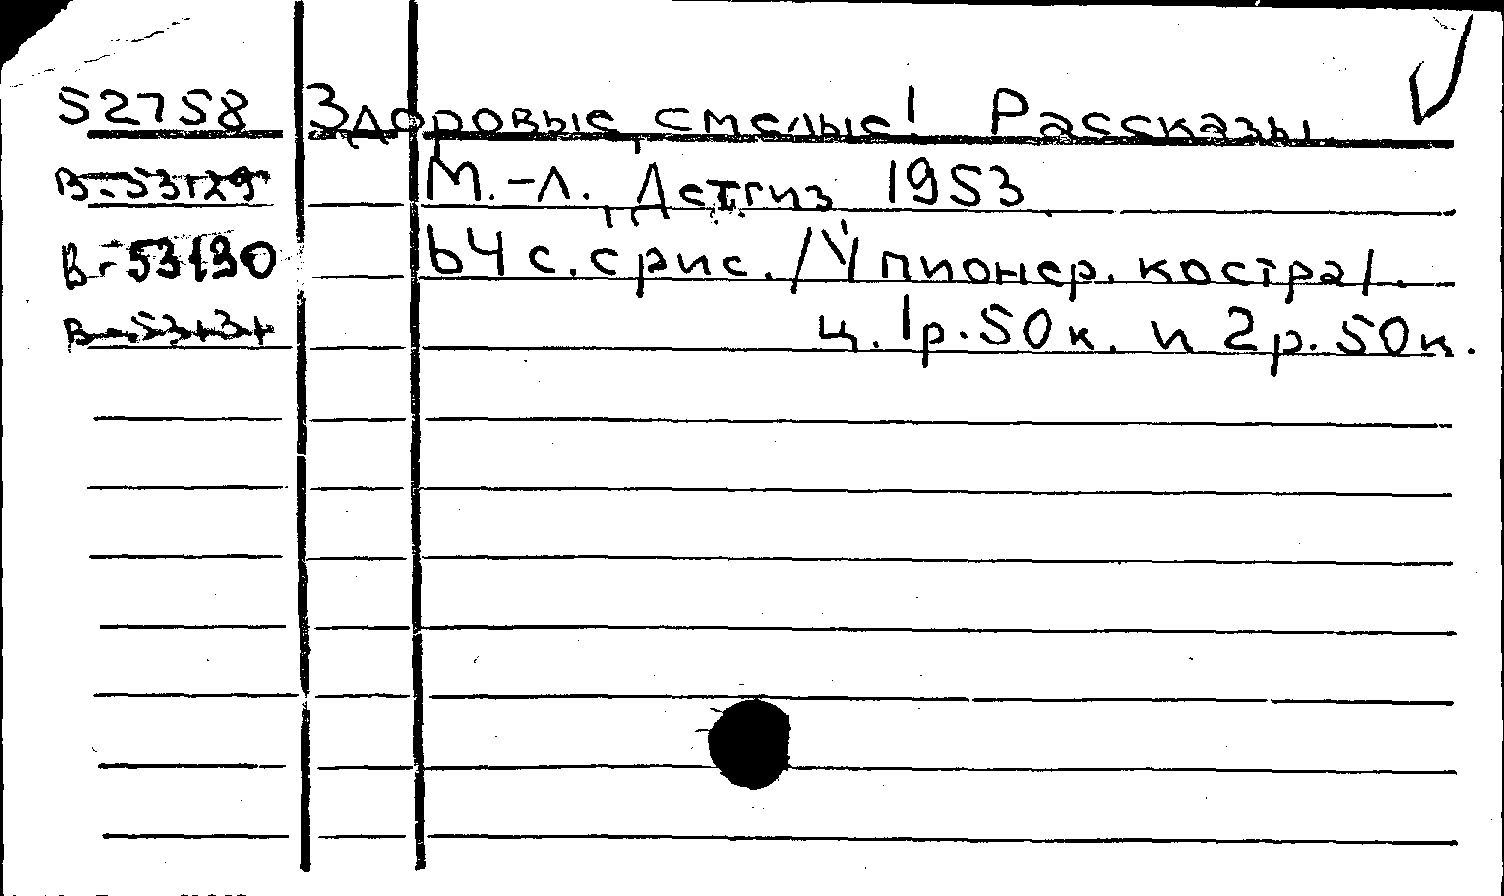 52758 Здоровые смелые! Рассказы
В-53129 М.-Л., Детгиз 1953
В-53130 64 с. с рис. /У пионер. костра/.
В-53131 ц. 1р.50к. и 2р.50к.